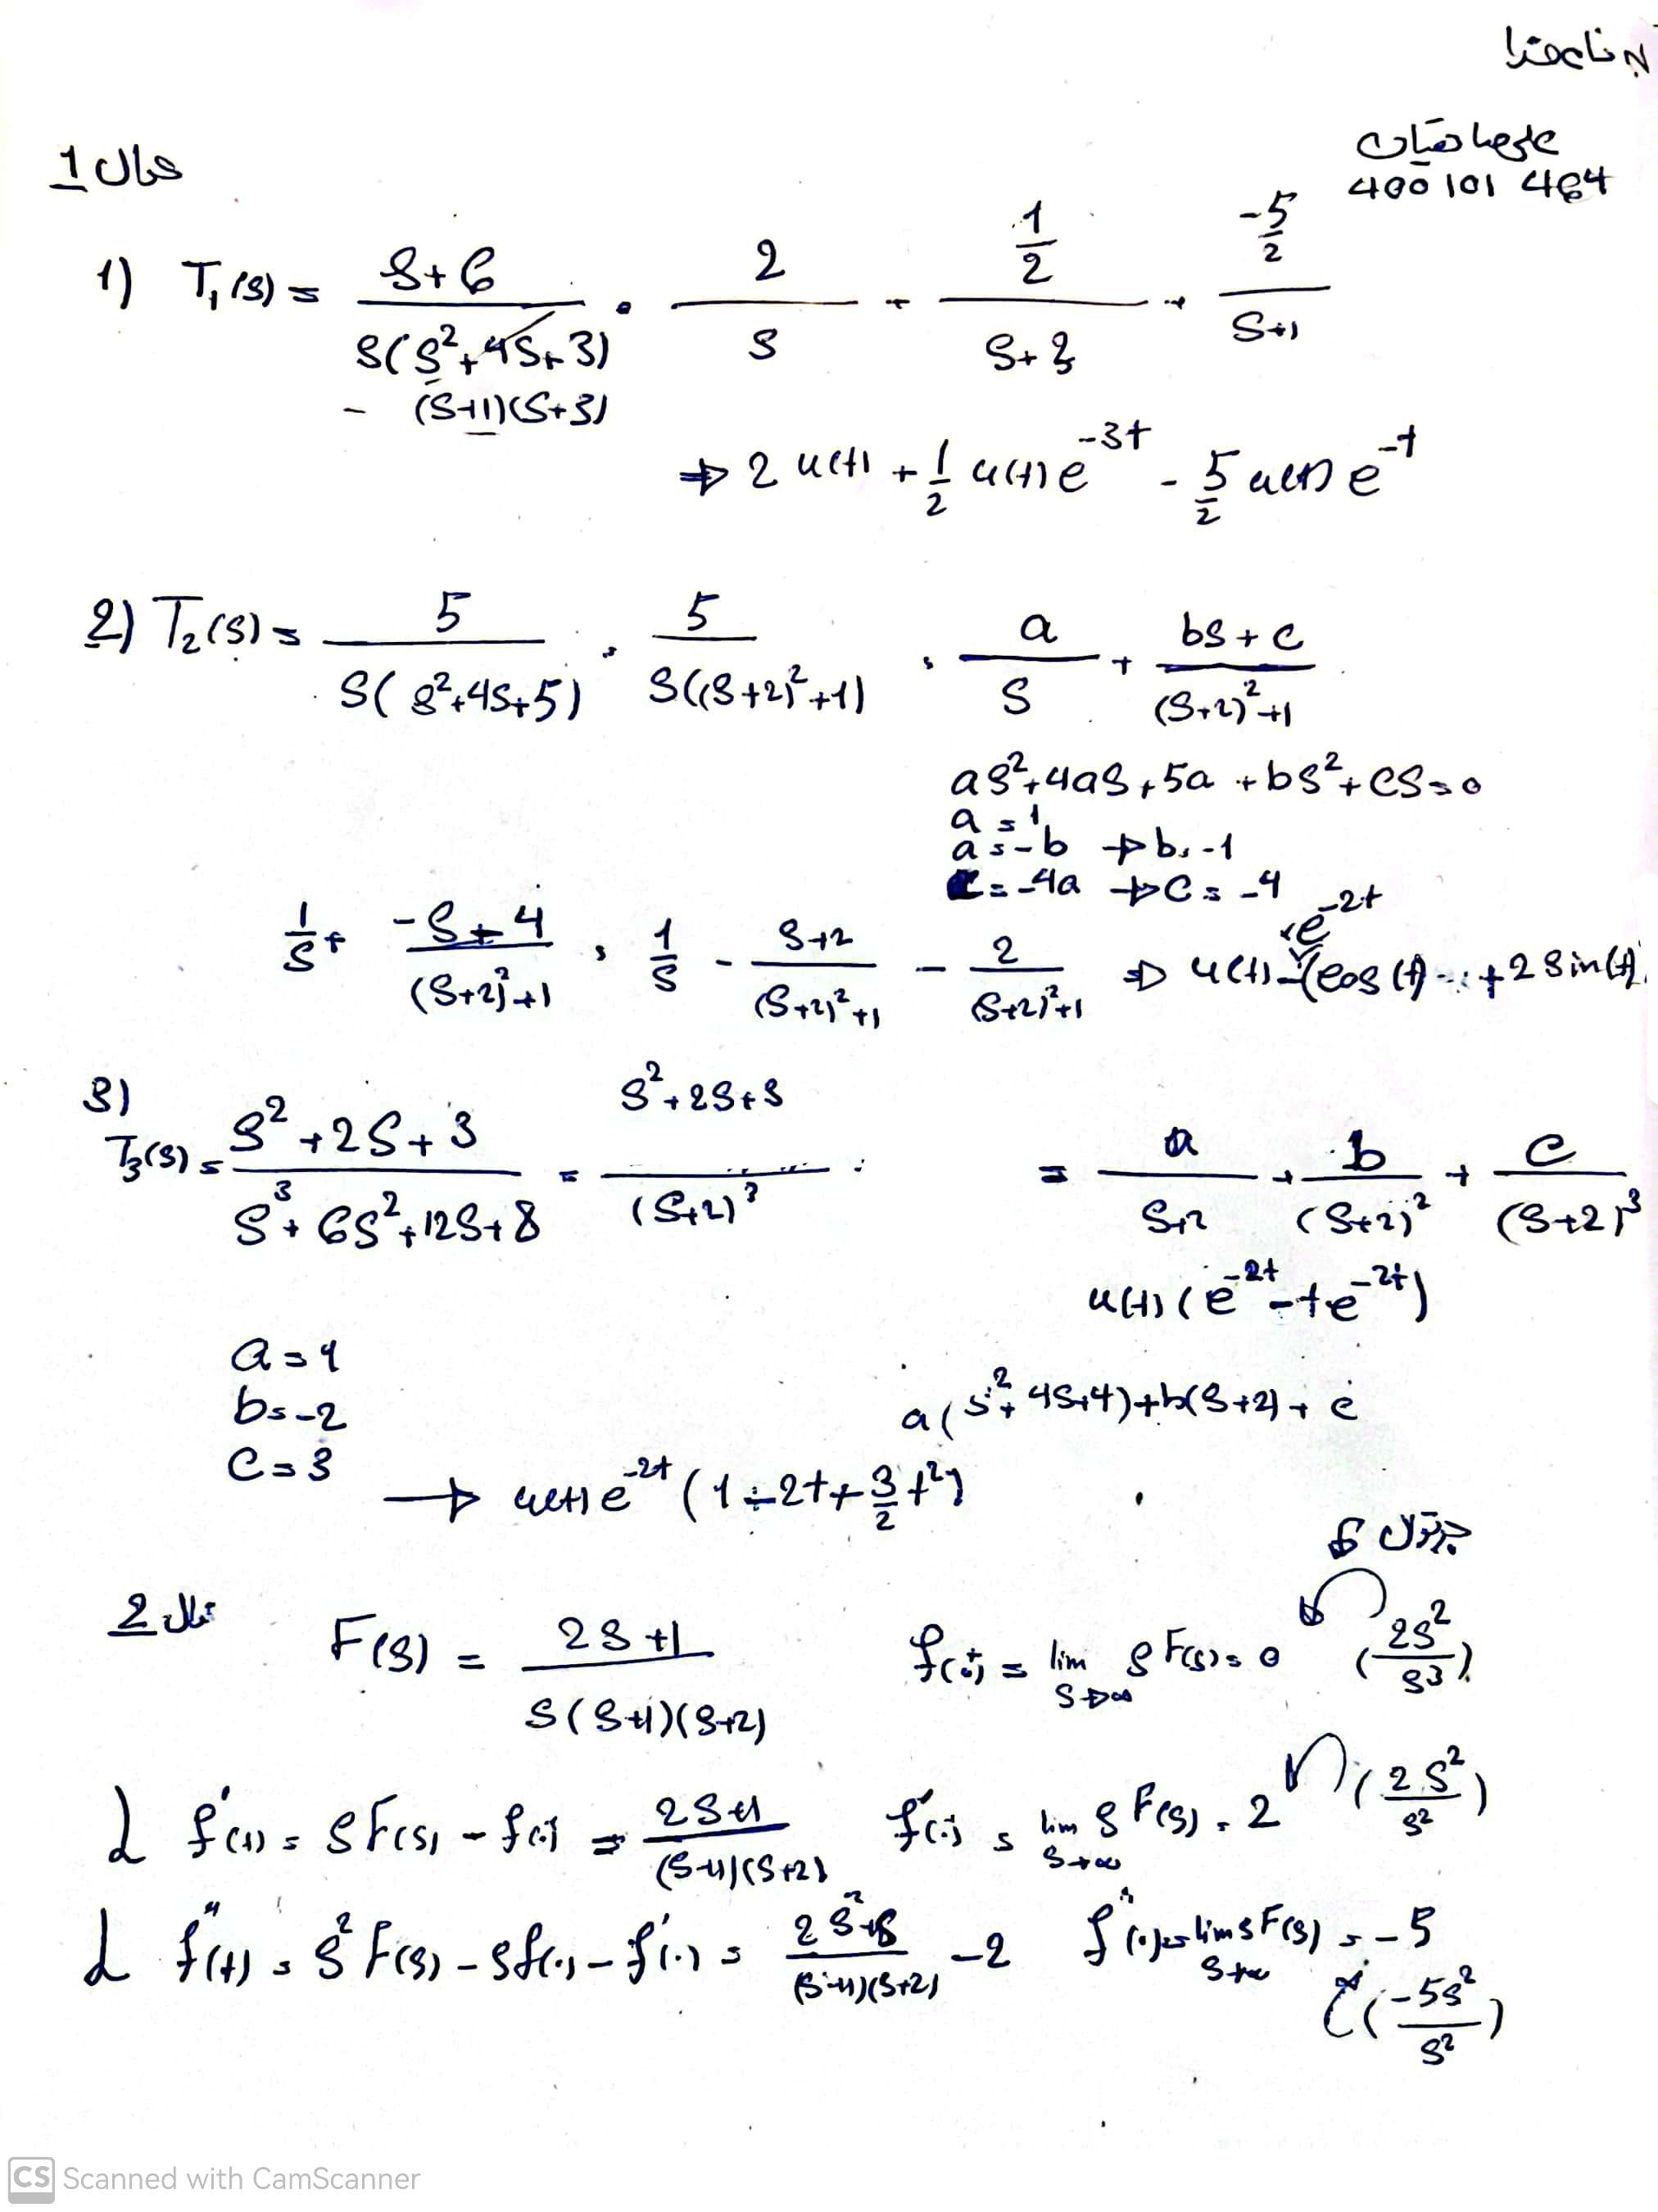 بنام خدا
400 101 464
سوال 1
1) T₁(s) = (s+6)/(s(s²+4s+3)) = 2/s + (1/2)/(s+3) + (-5/2)/(s+1)
(s+1)(s+3)
⇒ 2u(t) + 1/2 u(t)e^(-3t) - 5/2 u(t)e^(-t)
2) T₂(s) = 5/(s(s²+4s+5)) = 5/(s((s+2)²+1)) = a/s + (bs+c)/((s+2)²+1)
as²+4as+5a+bs²+cs=0
a=1
a=-b → b=-1
c=-4a → c=-4
1/s + (-s-4)/((s+2)²+1) = 1/s - (s+2)/((s+2)²+1) - 2/((s+2)²+1) ⇒ u(t)-e^(-2t)(cos(t)+2sin(t))
3)
T₃(s) = (s²+2s+3)/(s³+6s²+12s+8) = (s²+2s+3)/((s+2)³) = a/(s+2) + b/((s+2)²) + c/((s+2)³)
u(t)(e^(-2t)-te^(-2t))
a=1
b=-2
c=3
a(s²+4s+4)+b(s+2)+c
→ u(t)e^(-2t)(1-2t+3/2 t²)
سوال 2
F(s) = (2s+1)/(s(s+1)(s+2)) f(0⁺) = lim s→∞ sF(s) = 0 (2s²/s³)
L f'(t) = sF(s) - f(0) = (2s+1)/((s+1)(s+2)) f'(0) = lim s→∞ sF(s) = 2 (2s²/s²)
L f''(t) = s²F(s) - sf(0) - f'(0) = (2s²+s)/((s+1)(s+2)) - 2 f''(0) = lim s→∞ sF(s) = -5
(-5s²/s²)
CS Scanned with CamScanner